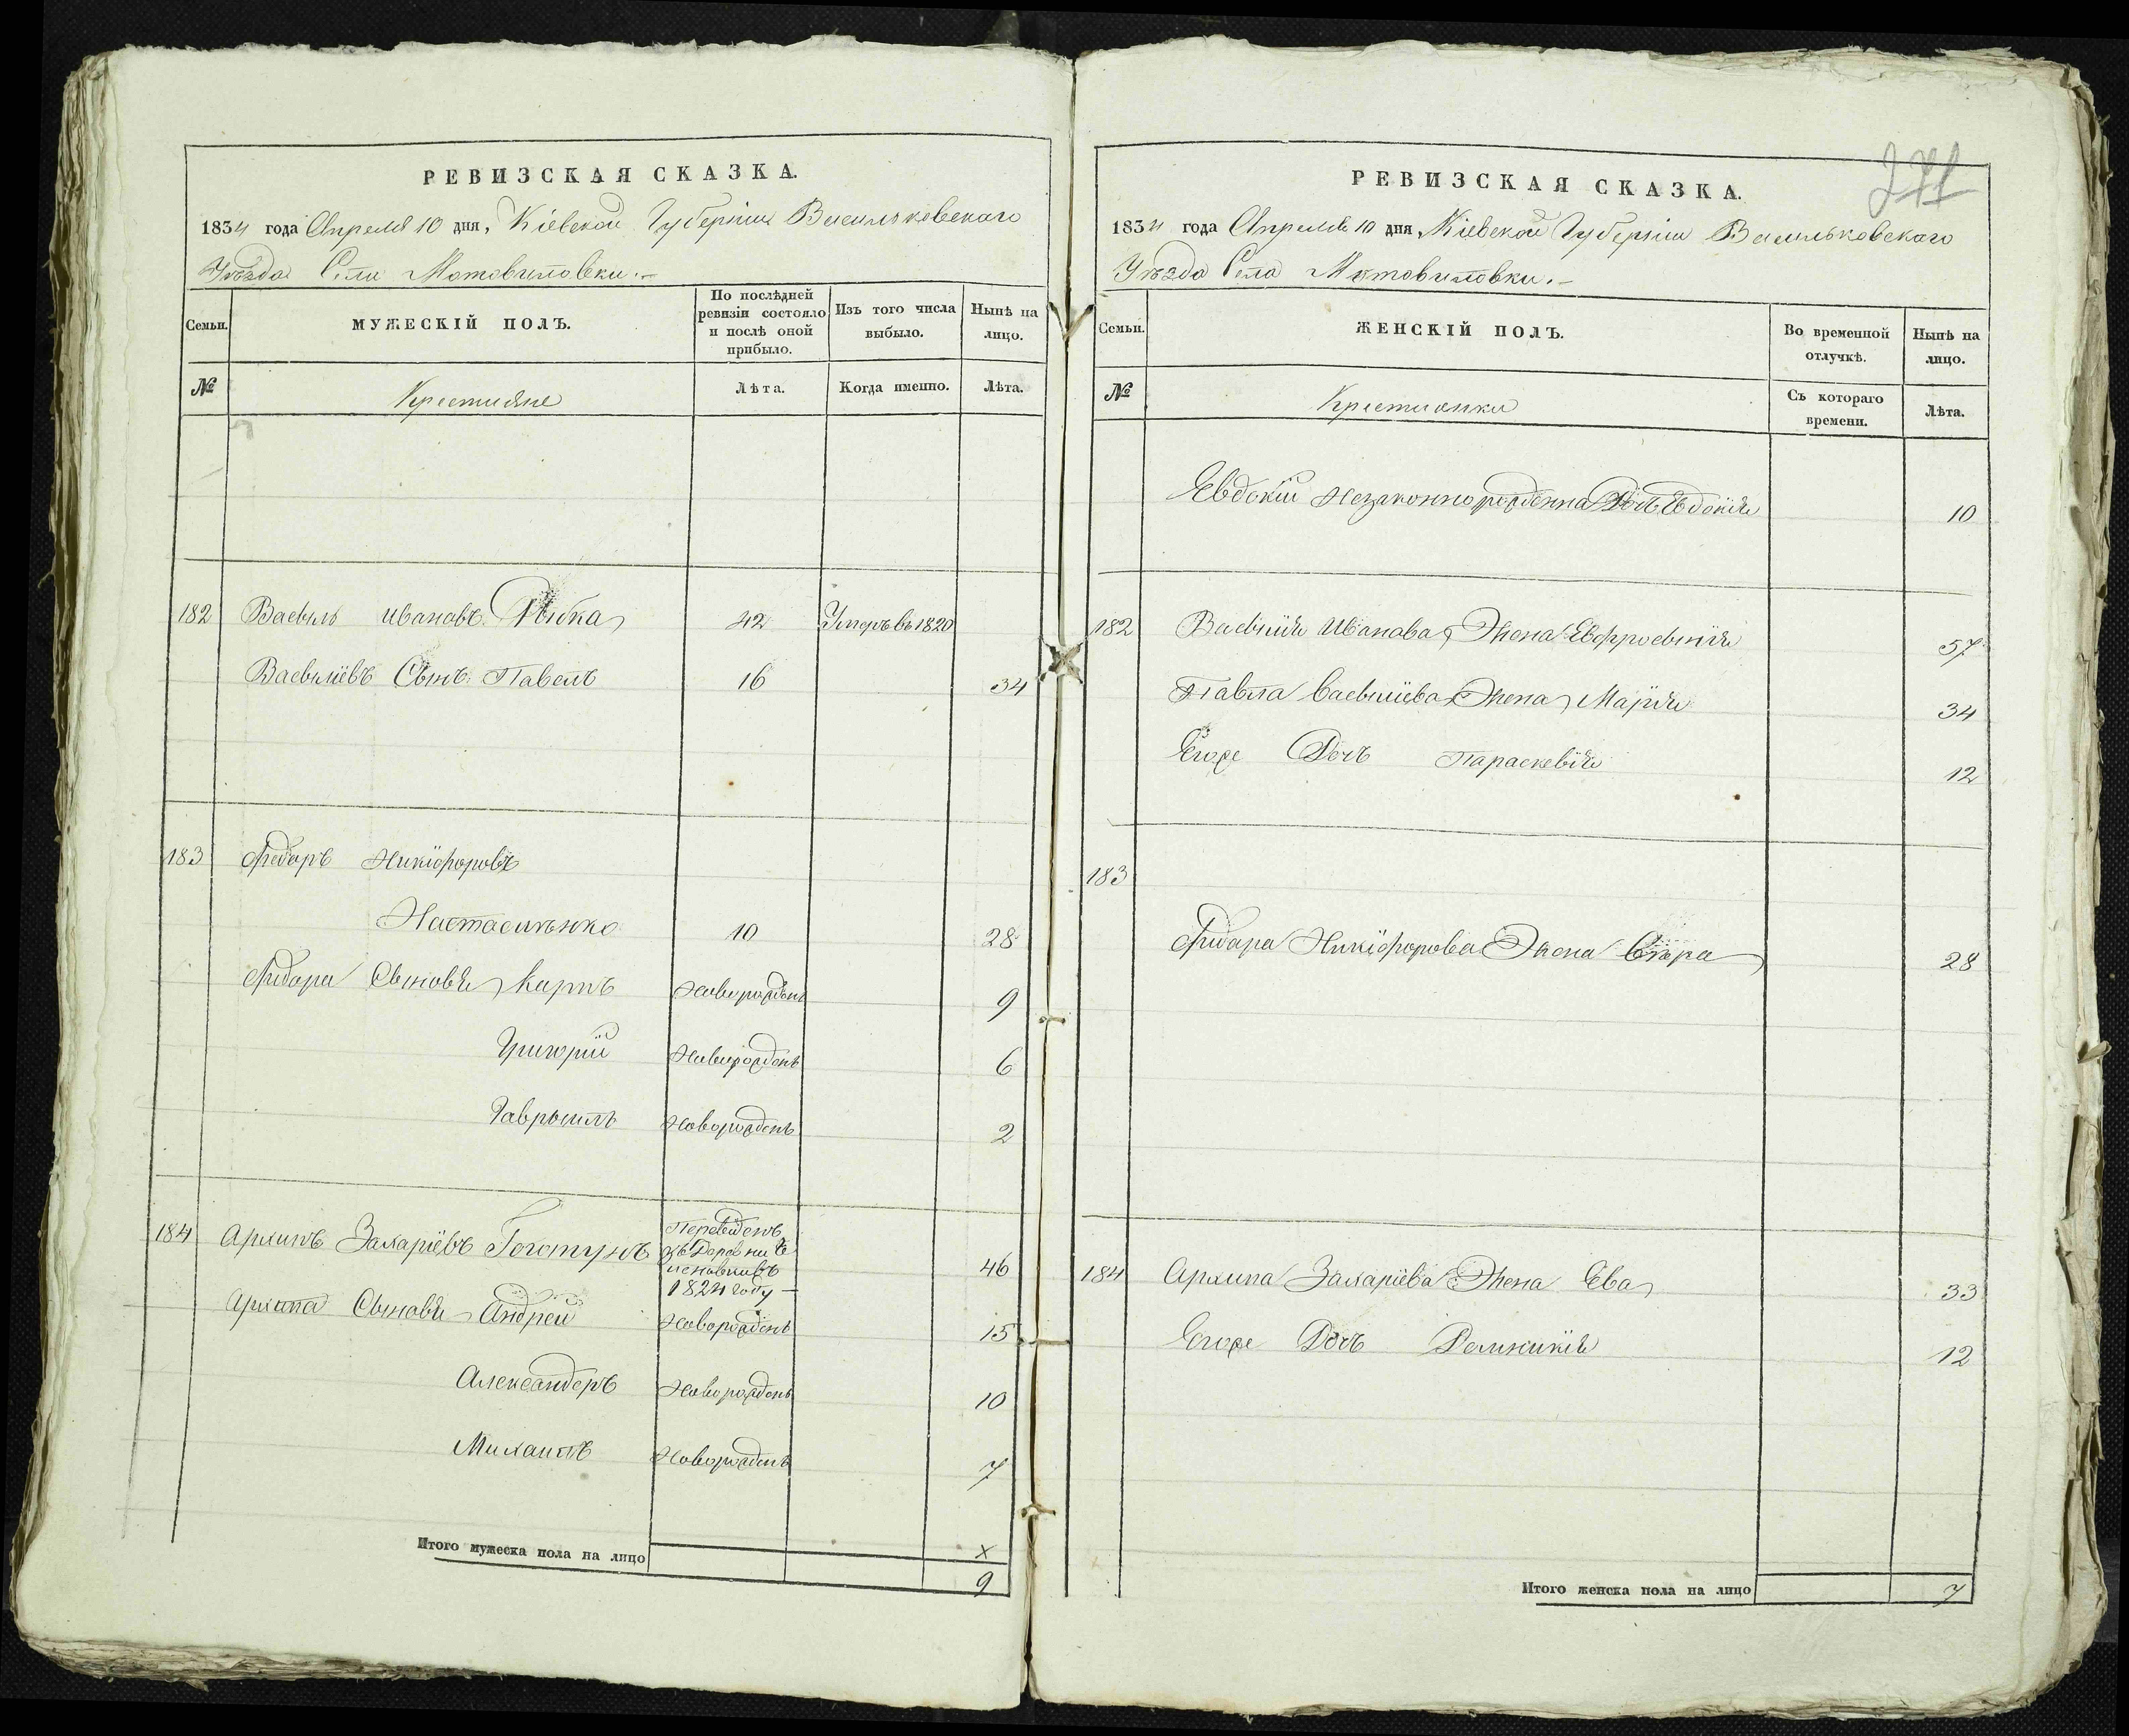 РЕВИЗСКАЯ СКАЗКА.
1834 года Апреля 10 дня, Кіевской Губерніи Васильковскаго
Уѣзда Села Мотовиловки.–
Семьи.
МУЖЕСКІЙ ПОЛЪ.
По послѣдней ревизіи состояло и послѣ оной прибыло.
Изъ того числа выбыло.
Нынѣ на лицо.
№
Крестьяне
Лѣта.
Когда именно.
Лѣта.
182 Василь Ивановъ Рыбка 42 Умеръ въ 1820
Васылiевъ Сынъ Павелъ 16 34
183 Федоръ Никіфоровъ
Настасиенко 10 28
Федора Сыновья Карпъ Новорожденъ 9
Григорій Новорожденъ 6
Гаврыилъ Новорожденъ 2
184 Архипъ Захаріевъ Товстунъ
Переведенъ
1824 году – 46
Архипа Сыновья Андрей Новорожденъ 15
Александеръ Новорожденъ 10
Михаилъ Новорожденъ 7
Итого мужеска пола на лицо
х
9
271
РЕВИЗСКАЯ СКАЗКА.
1834 года Апреля 10 дня, Кіевской Губерніи Васильковскаго
Уѣзда Села Мотовиловки.–
Семьи.
ЖЕНСКІЙ ПОЛЪ.
Во временной отлучкѣ.
Нынѣ на лицо.
№
Крестьянки
Съ котораго времени.
Лѣта.
Евдокіи Незаконнорожденна Дочъ Евдокія 10
182 Иванова Жена Евфросынія 57
Павла Васыліева Жена Марія 34
Егоже Дочъ Параскевія 12
183
Федора Никіфорова Жена Вѣра 28
184 Архипа Захаріева Жена Ева 33
Егоже Дочъ Домникія 12
Итого женска пола на лицо 7